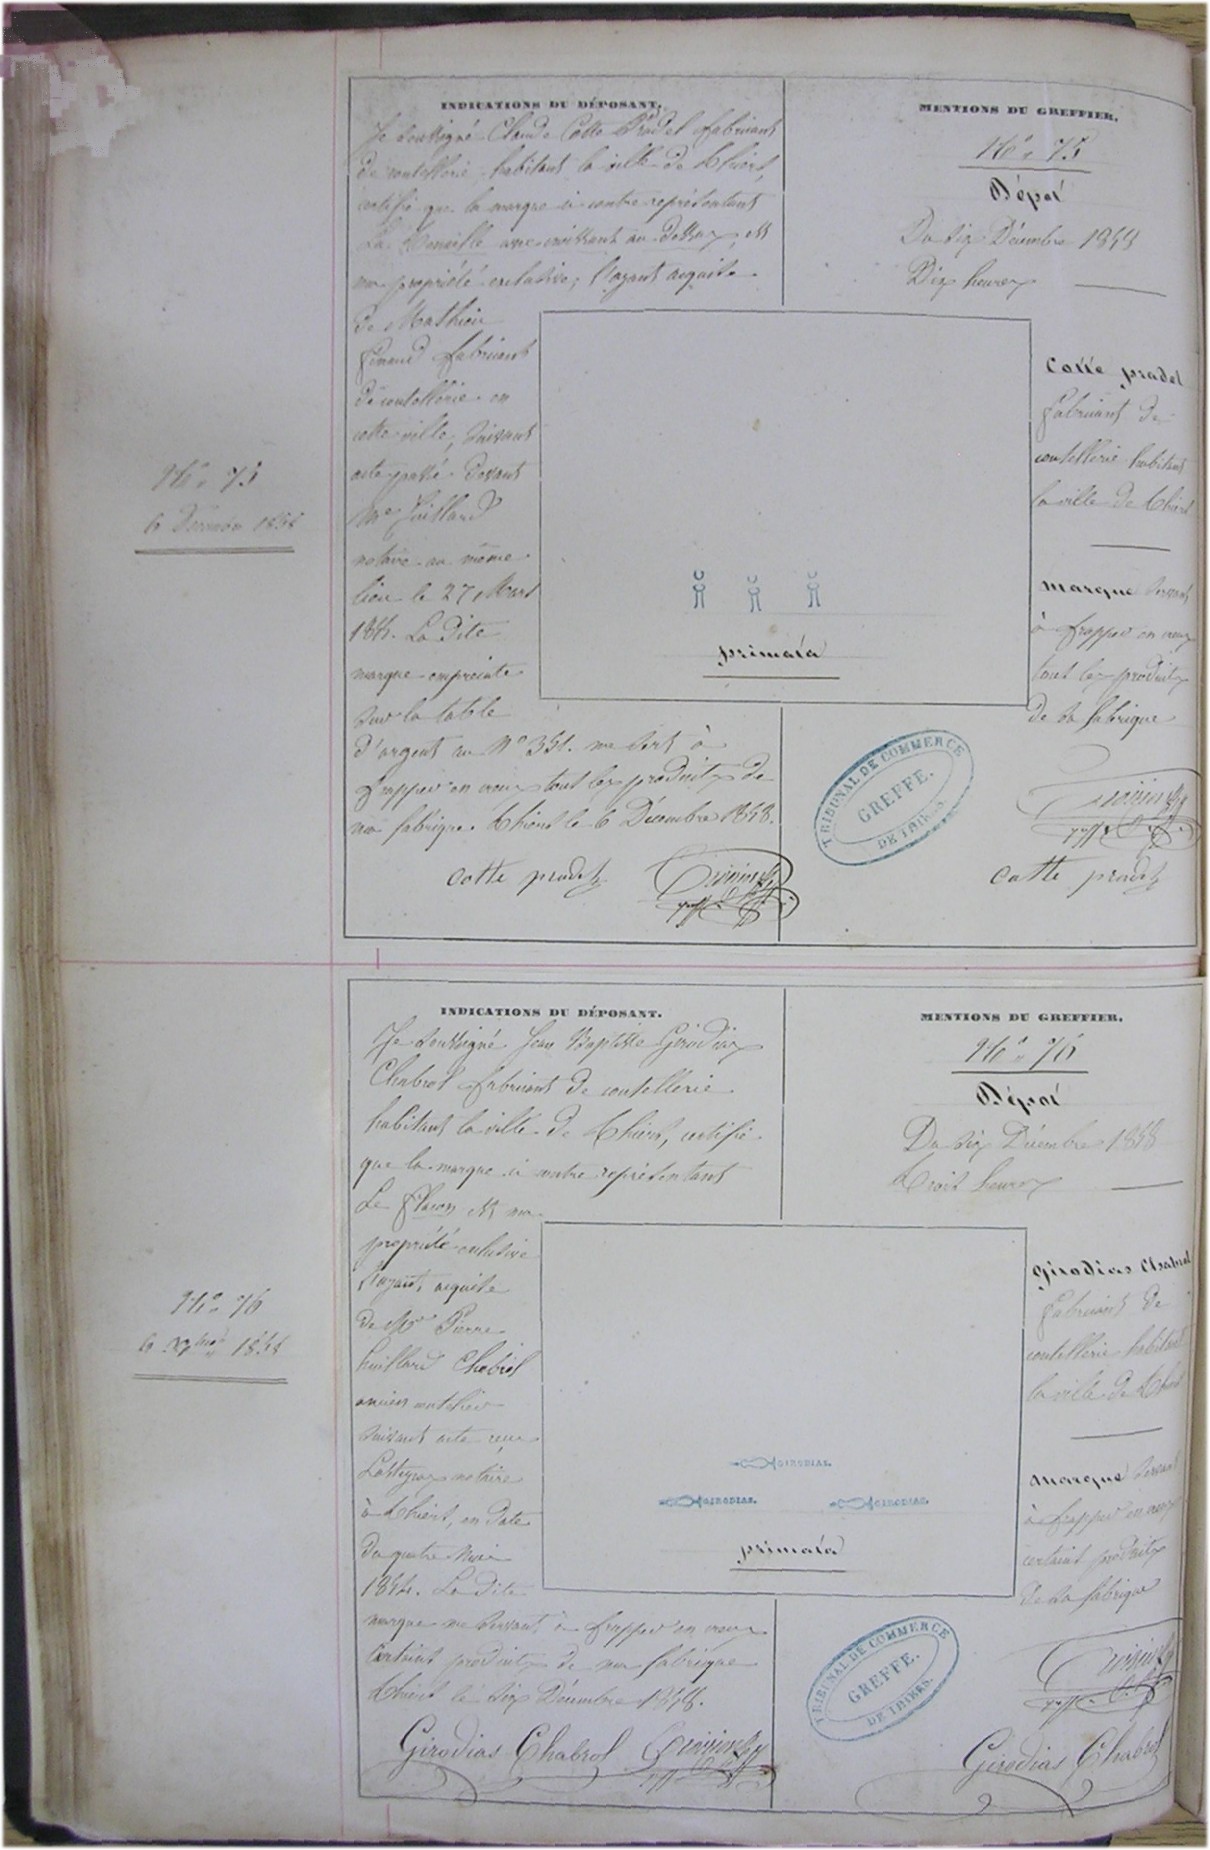 INDICATIONS DU DÉPOSANT.
Je soussigné Claude Cotte Pradel fabricant
de coutellerie habitant la ville de Thiers,
certifie que la marque ci contre représentant
La avec croissant au dessus, est
ma propriété exclusive, l'ayant acquise
de Mathieu
fabricant
de coutellerie en
cette ville, suivant
acte passé devant
Me
notaire au même
lieu le 27 Mars
La dite
marque empreinte
sur la table
d'argent au No 351. me sert à
frapper en creux tout les produits de
ma fabrique. Thiers le 6 Décembre 1858.
cotte pradel
MENTIONS DU GREFFIER.
No. 75
Dépot
Du six Décembre 1858
Dix heures
Cotte pradel
fabricant de
coutellerie habitant
la ville de Thiers
marque servant
à frapper en creux
tout les produits
de sa fabrique
cotte pradel
primata
TRIBUNAL DE COMMERCE
GREFFE.
DE THIERS.
No. 75
6 Décembre 1858
INDICATIONS DU DÉPOSANT.
Je soussigné Jean Baptiste Girodias
Chabrol fabricant de coutellerie
habitant la ville de Thiers, certifie
que la marque ci contre représentant
Le flacon est ma
propriété exclusive
l'ayant acquise
de Mr Pierre
Chabrol
ancien coutelier
suivant acte reçu
notaire
à Thiers, en date
du quatre Mai
La dite
marque me servant à frapper en creux
certains produits de ma fabrique
Thiers le six Décembre 1858.
Girodias Chabrol
MENTIONS DU GREFFIER.
No. 76
Dépot
Du six Décembre 1858
Trois heures
Girodias Chabrol
fabricant de
coutellerie habitant
la ville de Thiers
marque servant
à frapper en creux
certains produits
de sa fabrique
Girodias Chabrol
GIRODIAS.
GIRODIAS. GIRODIAS.
primata
TRIBUNAL DE COMMERCE
GREFFE.
DE THIERS.
No. 76
6 Xbre 1858